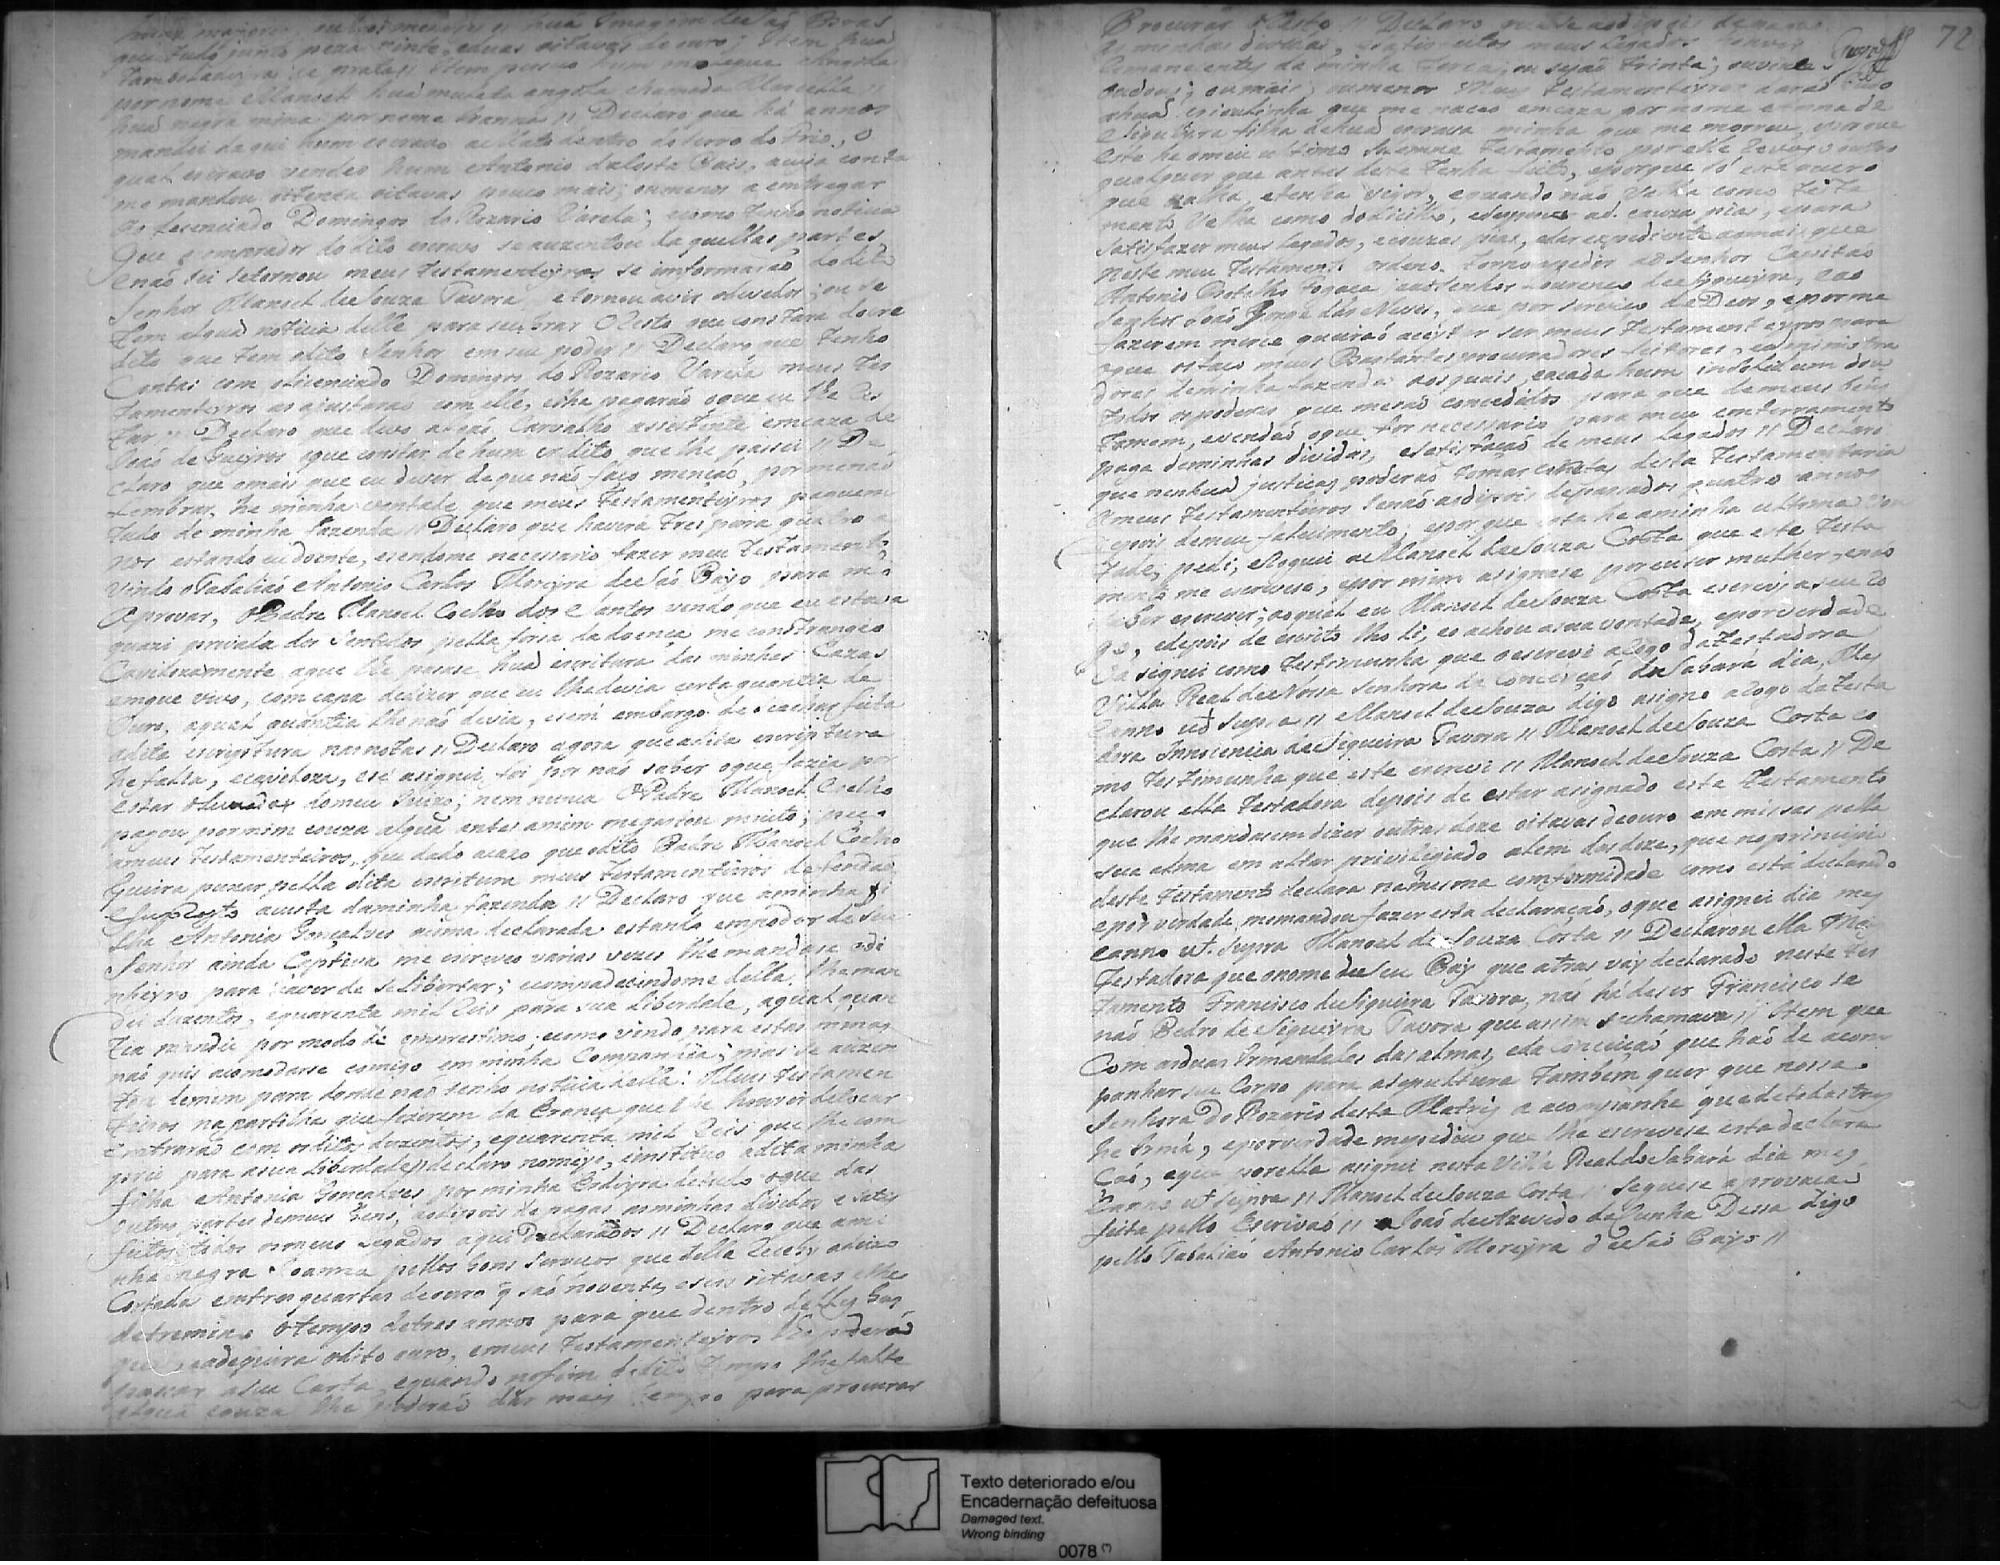 que tudo junto peza vinte, e duas oitavas de ouro; Item huã
Tamboladeira de prata; Item pesuo hum moleque Angola
por nome Manoel huã mulata angola chamada Marcella //
huã negra mina por nome Joanna // Declaro que há annos
mandei daqui hum escravo ao Mato dentro do serro do frio, o
qual escravo vendeo hum Antonio da Costa Pais, cuja conta
me mandou oitenta oitavas pouco mais, ou menos a entregar
ao lecenciado Domingos do Rozario Varela; e como tenho noticia
que o comprador do dito escravo se auzentou daquellas partes,
e não sei se tornou meus testamenteyros se informarão do dito
Senhor Manoel de Souza Tavora, e tornou aviso
Tem alguã noticia delle para se cobrar o Resto que constara do cre
dito que tem o dito Senhor em seu poder // Declaro que tenho
Contas com o licenciado Domingos do Rozario Varela meus Tes
tamenteyros as ajustarão com elle, e lhe pagarão o que eu lhe Res
tar // Declaro que devo a João Carvalho assistente em caza de
João de Queyros o que constar de hum credito que lhe passei // De
claro que o mais que eu dever de que não faço menção, por me não
Lembrar, he minha vontade que meus Testamenteyros paguem
tudo de minha fazenda // Declaro que havera tres para quatro a
nos estando eu doente, e sendome necessario fazer meu Testamento
vindo o Tabalião Antonio Carlos Moreyra de São Payo para mo
Aprovar, o Padre Manoel Coelho dos Santos vendo que eu estava
quazi privada dos Sentidos pella forsa da doença me constrangeo
Cavilozamente a que lhe pasase huã escritura das minhas Cazas
em que vivo, com capa de dizer que eu lhe devia certa quantia de
Ouro, a qual quantia lhe não devia, e sem embargo de se achar feita
a dita escriptura nas notas // Declaro agora que a dita escriptura
he falsa, e caviloza, e se asignei, foi por não saber o que fazia por
estar do meu Juizo; nem nunca o Padre Manoel Coelho
pagou por mim couza alguã antes a mim me gastou muito, e peço
a meus Testamenteiros, que dado cazo que o dito Padre Manoel Coelho
queira puxar pella dita escritura meus Testamentiros defendão
o a custa da minha fazenda // Declaro que a minha fi
lha Antonia Gonçalves asima declarada estando em poder de seu
Senhor ainda Captiva me escreveo varias vezes lhe mandase o di
nheyro para haver de se Libertar; e compadecendome della, lhe man
dei duzentos, e quarenta mil Reis para sua Liberdade, a qual quan
tia mandei por modo de emprestimo; e como vindo para estas minas
não quis acomodarse comigo em minha Companhia; mas se auzen
tou de mim para donde não tenho noticia della: Meus Testamen
teiros na partilha que fizerem da Erança que lhe houver de tocar
entrarão com os ditos duzentos, e quarenta mil Reis que lhe em
prestei para a sua Liberdade // declaro nomeyo, e instituo a dita minha
filha Antonia Gonçalves por minha Erdeyra de tudo o que das
outras partes de meus bens, ao depois de pagas as minhas dividas e satis
feitos todos os meus Legados aqui Declarados // Declaro que a mi
nha negra Joanna pellos bons servicos que della Recebi a deixo
Cortada em tres quartas de ouro q̃ são noventa, e seis oitavas e lhe
detremino o tempo de tres annos para que dentro delles bus
que, e adequira o dito ouro, e meus Testamenteyros lhe poderão
passar a sua Carta, e quando no fim do dito tempo lhe falte
alguã couza lhe poderão dar mais tempo para procurar
Procurar o Resto // Declaro que se ao depois de pagas
as minhas dividas, e satisfeitos meus legados houver
Remanecentes da minha terca; ou sejão trinta; ou vinte
ou dous; ou mais; ou menos Meus Testamenteyros darão tudo
a huã crioulinha que me naceo em caza por nome Anna de
Siqueira filha de huã escrava minha que me morreo, e por que
este he o meu ultimo e solemne Testamento por elle Revogo outro
qualquer que antes deste tenha feito, e porque só este quero
que valha, e tenha vigor, e quando não valha como testa
mento valha como codicillo, e despozição ad cauza pias, e para
satisfazer meus legados, e couzas pias, e dar expediente ao mais que
neste meu Testamento ordeno. Torno a pedir ao Senhor Capitão
Antonio Botelho Fogaça ao Senhor Lourenco de Siqueira, e ao
Senhor João Jorge das Neves, que por servico de Deos, e por me
fazerem merce queirão aceitar ser meus Testamenteyros para
o que os faco meus Bastantes procuradores feitores, e administra
dores de minha fazenda aos quais, e a cada hum insolidum dou
todos os poderes que me são concedidos para que de meus bens
Tomem, e vendão o que for necessario para meu enterramento
paga de minhas dividas, e satisfação de meus Legados // Declaro
que nenhuã justiça poderá tomar contas desta Testamentaria
a meus Testamenteiros senão ao depois de passados quatro annos
depois de meu falecimento, e por que esta he a minha ultima von
tade, pedi, e Roguei a Manoel de Souza Costa que este Testa
mento me escrevese, e por mim asignase por eu ser mulher, e não
saber escrever; ao qual eu Manoel de Souza Costa escrevi a seu Ro
go, e depois de escrito lho li, e o achou a sua vontade, e por verdade
o asignei como testimunha que o escrevi a Rogo da Testadora
Villa Real de Nossa Senhora da Conceição do Sabará dia, Mes
e anno ut Supra // Manoel de Souza digo asigno a Rogo da Testa
dora Innocencia de Siqueira Tavora // Manoel de Souza Costa co
mo Testimunha que este escrevi // Manoel de Souza Costa // De
clarou ella testadora depois de estar asignado este Testamento
que lhe mandasem dizer outras doze oitavas de ouro em missas pella
sua alma em altar privilegiado alem das doze, que no principio
deste Testamento declara na mesma comformidade como está declarado
e por verdade me mandou fazer esta declaração, o que asignei dia mes
e anno ut. Supra Manoel de Souza Costa // Declarou ella
Testadora que o nome de seu Pay que atras vay declarado neste tes
tamento Francisco de Siqueira Tavora, não há de ser Francisco se
não Pedro de Siqueyra Tavora que assim se chamava // Item que
Com as duas Irmandades das almas, e da Conceição que hão de acom
panhar seu Corpo para a sepultura Tambem quer que nossa
Senhora do Rozario desta Matris a acompanhe que de todas tres
he Irmã, e por verdade me pedio que lhe escrevese esta declara
Cão, e que por ella asignei nesta Villa Real do Sabará dia mes
e anno ut supra // Manoel de Souza Costa // Seguese a provação
feita pello Escrivão // João de Azevedo da Cunha Dessa digo
pello Tabalião Antonio Carlos Moreyra de São Payo //
72
Texto deteriorado e/ou
Encadernação defeituosa
Damaged text.
Wrong binding
0078